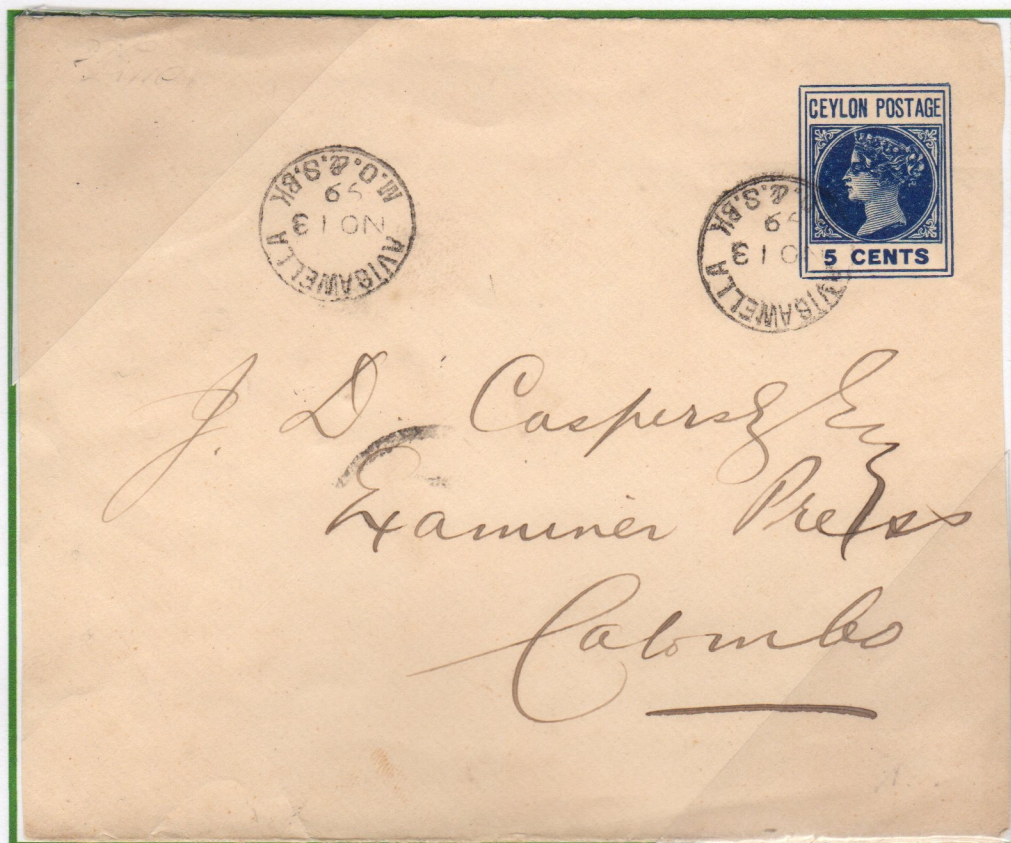 CEYLON POSTAGE
5 CENTS
AVISAWELLA
NO 13
99
M.O.&S.BK
AVISAWELLA
NO 13
99
&.S.BK
J. D. Caspersz Esq
Examiner Press
Colombo